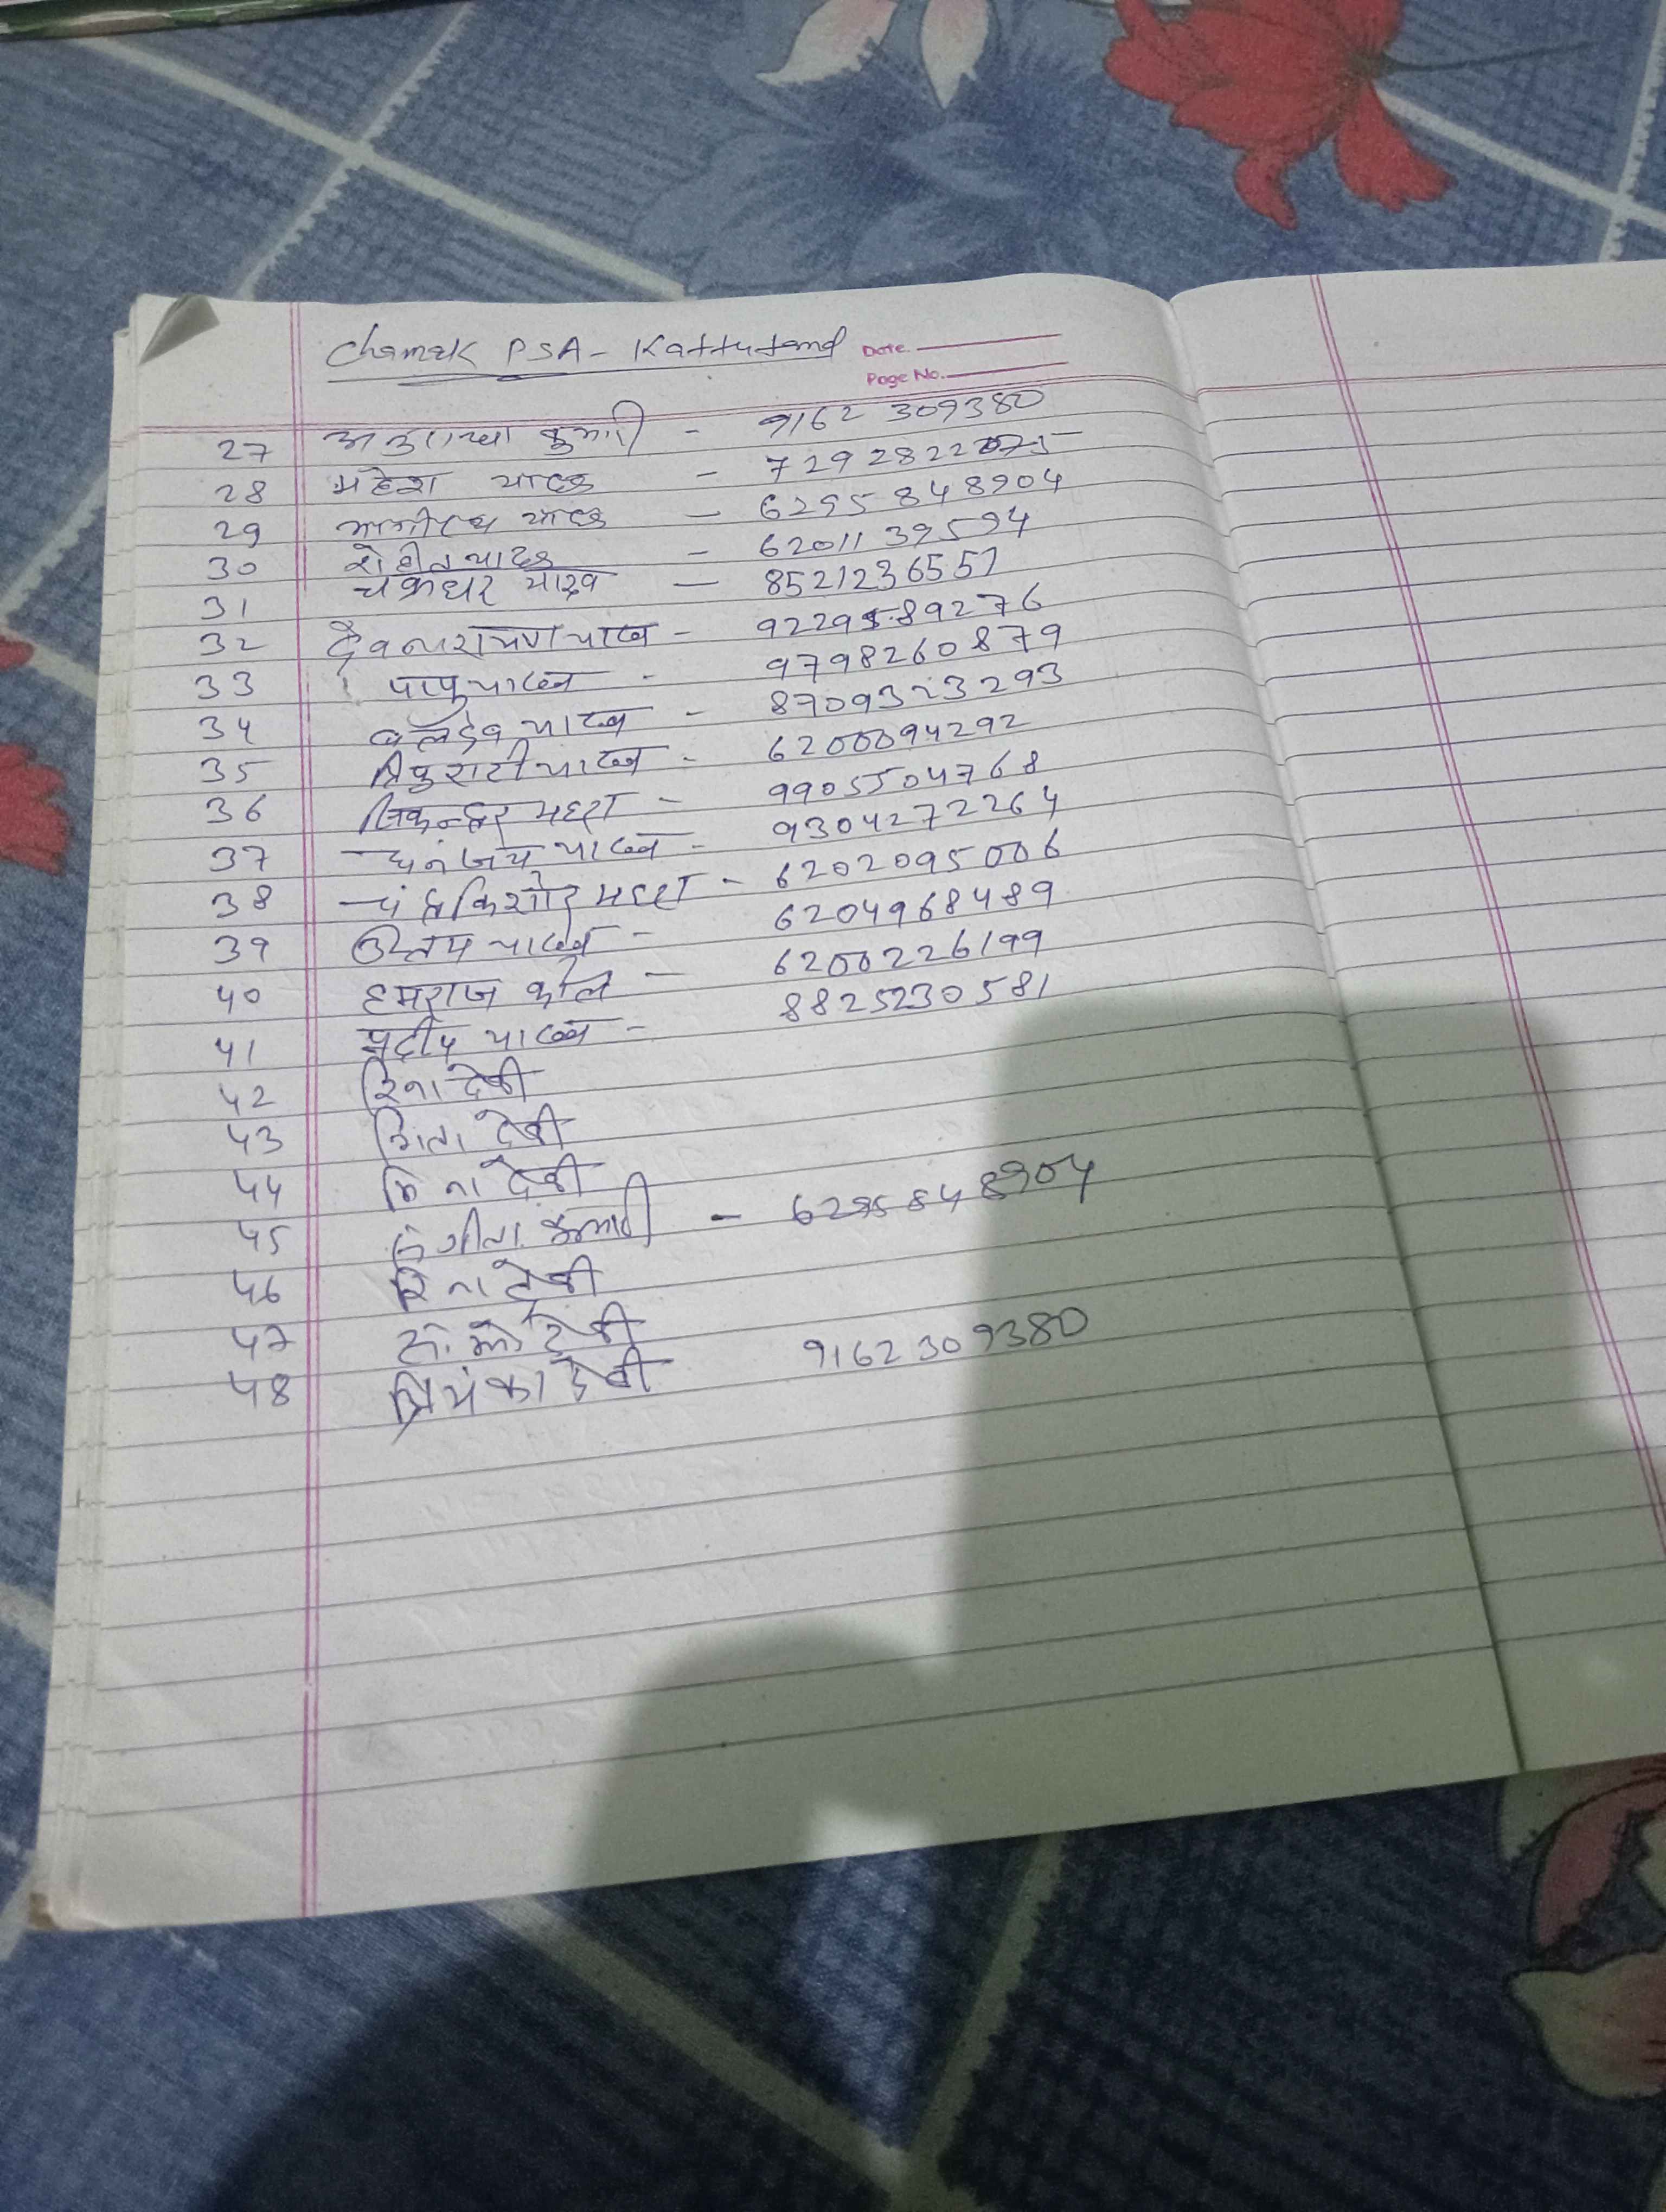 Chamak PSA - Kattutand
Date.
Page No.
27 अनुराधा कुमारी - 9162 309380
28 महेश यादव - 7292822075
29 भागीरथ यादव - 6295848904
30 रोहीत यादव - 6201139594
31 चक्रधर यादव - 8521236557
32 देवनारायण यादव - 9229589276
33 पप्पु यादव - 9798260879
34 बलदेव यादव - 8709323293
35 यादव - 6200094292
36 सिकन्दर महरा - 9905504768
37 धनंजय यादव - 9304272264
38 चंद्रकिशोर महरा - 6202095006
39 उत्तम यादव - 6204968489
40 हेमराज कोल - 6200226199
41 प्रदीप यादव - 8825230581
42 रिना देवी
43 गिता देवी
44 मिना देवी
45 संगीता कुमारी - 6295848904
46 रिना देवी
47 देवी
48 प्रियंका देवी 9162309380